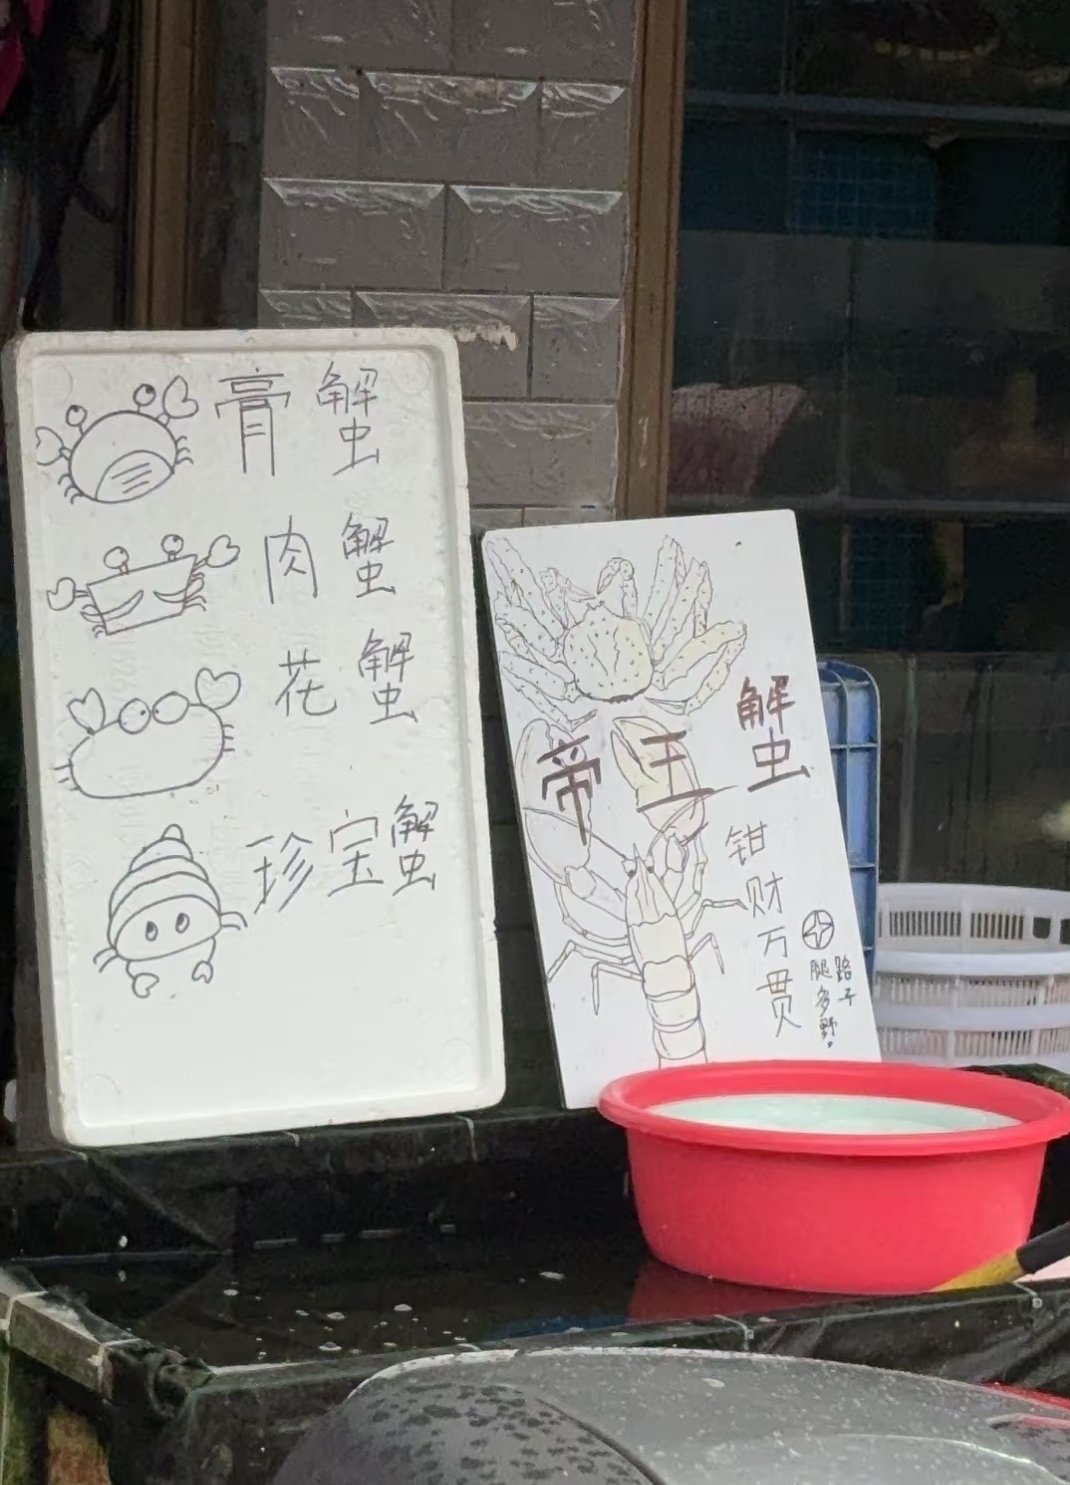 膏蟹
肉蟹
花蟹
珍宝蟹
帝王蟹
钳财万贯
腿多野
路子